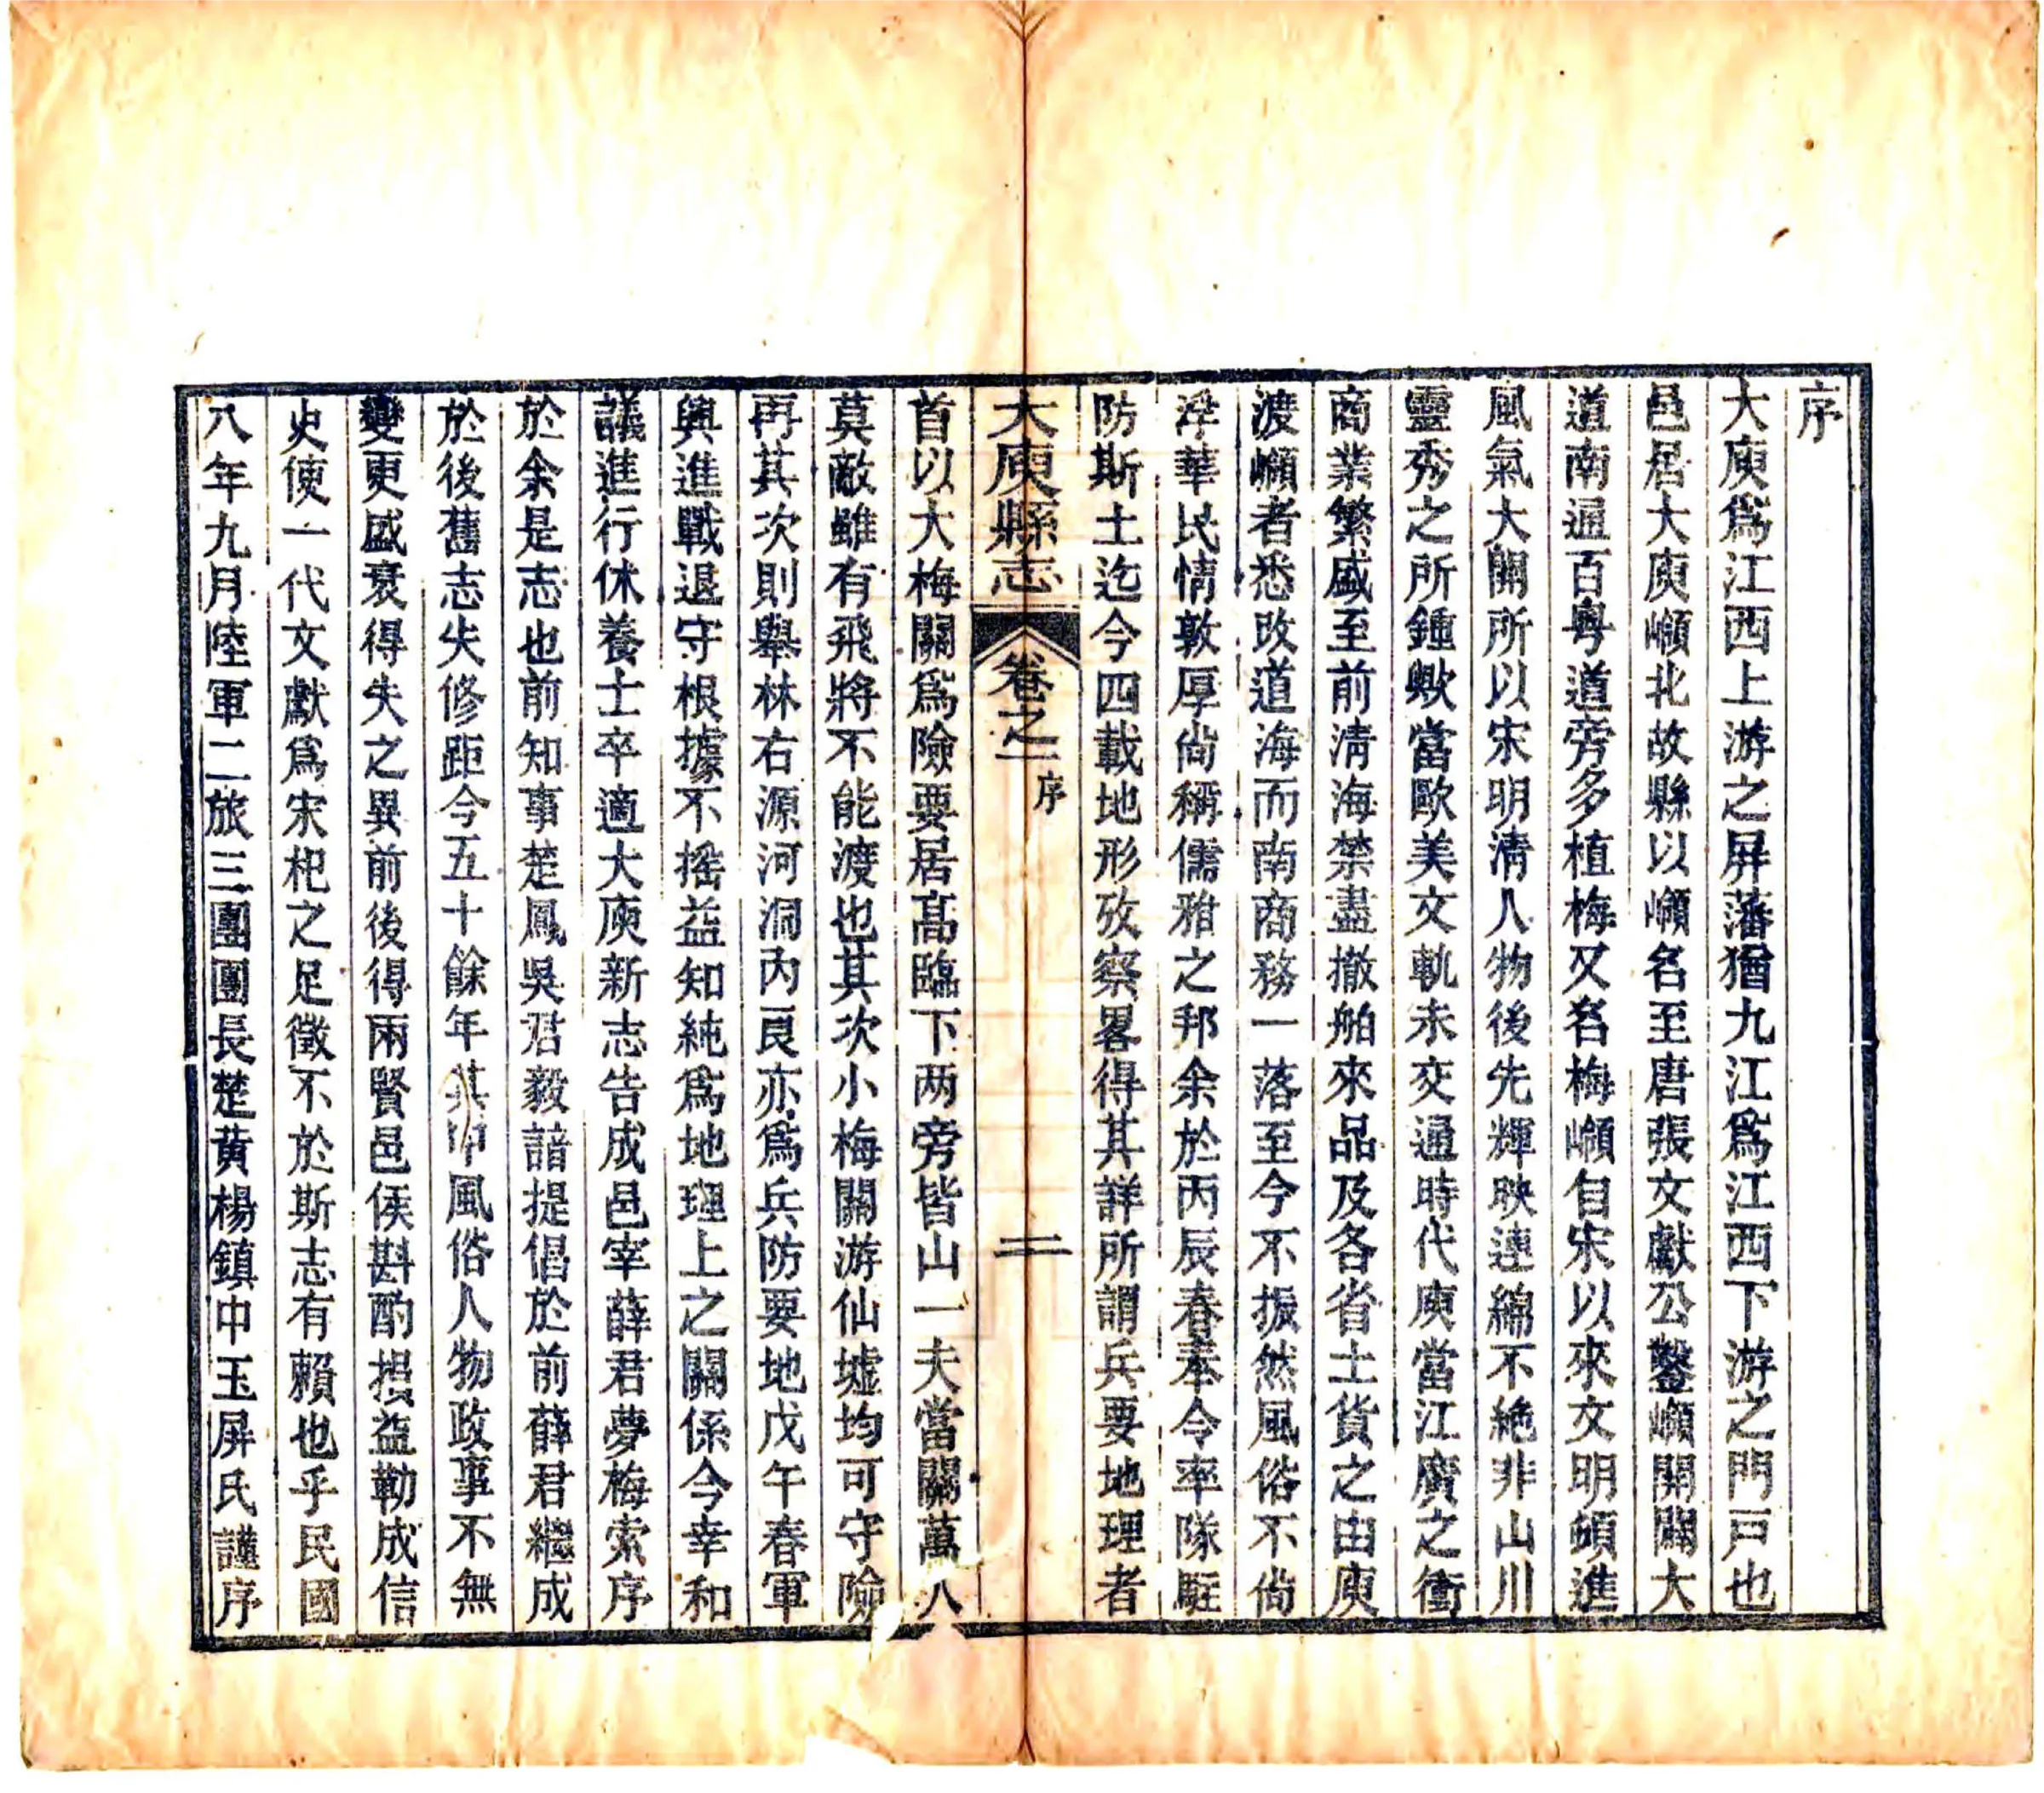 序
大庾爲江西上游之屏藩猶九江爲江西下游之門戸也
邑居大庾嶺北故縣以嶺名至唐張文獻公鑿嶺開闢大
道南通百粤道旁多植梅又名梅嶺自宋以來文明碩進
風氣大開所以宋明清人物後先輝映連綿不絶非山川
靈秀之所鍾歟當歐美文軌未交通時代庾當江廣之衝
商業繁盛至前清海禁盡撤舶來品及各省土貨之由庾
渡嶺者悉改道海而南商務一落至今不振然風俗不尚
浮華民情敦厚尚稱儒雅之邦余於丙辰春奉令率隊駐
防斯土迄今四載地形攷察畧得其詳所謂兵要地理者
大庾縣志 卷之一 序 二
首以大梅關爲險要居高臨下两旁皆山一夫當關萬人
莫敵雖有飛將不能渡也其次小梅關游仙墟均可守險
再其次則舉林右源河洞内良亦爲兵防要地戊午春軍
興進戰退守根據不摇益知純爲地理上之關係今幸和
議進行休養士卒適大庾新志告成邑宰薛君夢梅索序
於余是志也前知事楚鳳吳君毅諳提倡於前薛君繼成
於後舊志失修距今五十餘年其中風俗人物政事不無
變更盛衰得失之異前後得兩賢邑侯斟酌損益勒成信
史使一代文獻爲宋杞之足徵不於斯志有賴也乎民國
八年九月陸軍二旅三團團長楚黄楊鎮中玉屏氏謹序